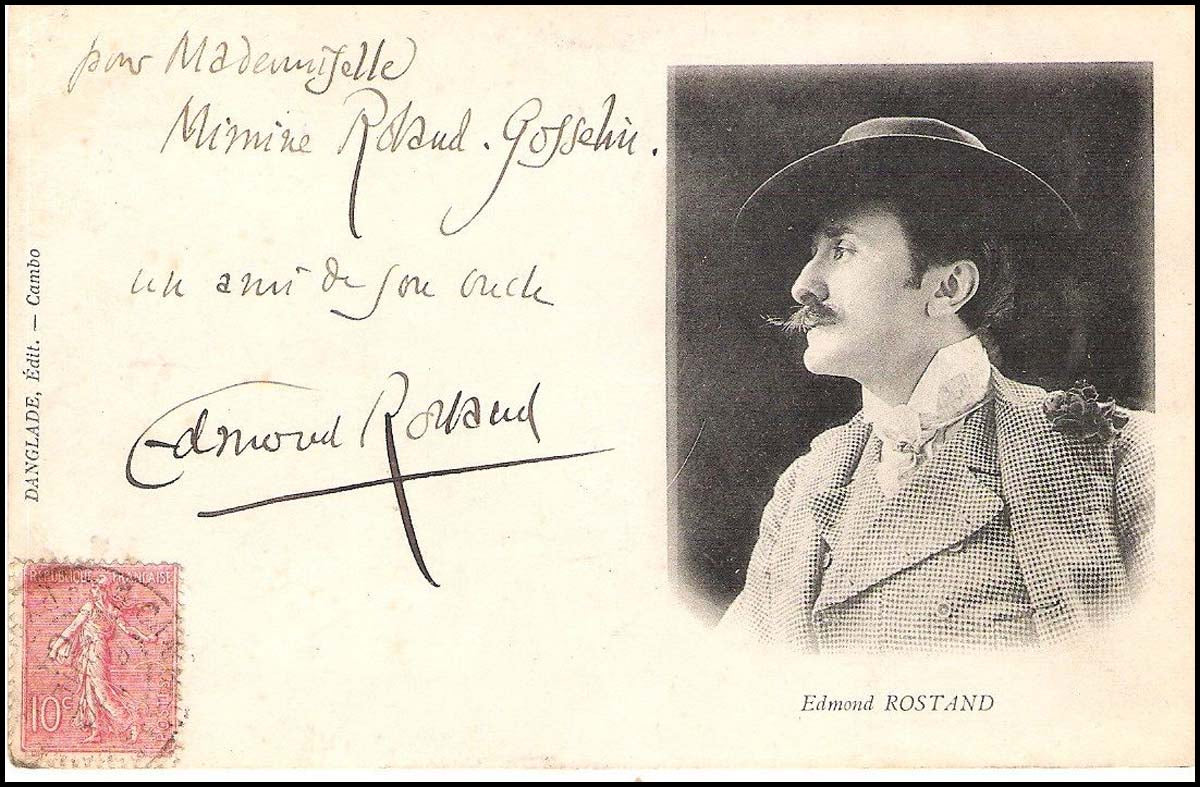 pour Mademoiselle
Mimine Roland-Gosselin.
un ami de son oncle
Edmond Rostand
DANGLADE, Édit. — Cambo
REPUBLIQUE FRANÇAISE
10c
Edmond ROSTAND